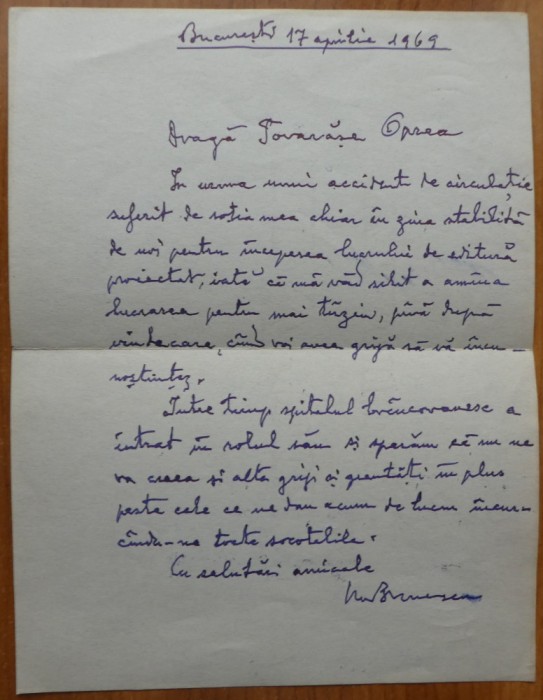 București 17 aprilie 1969
Dragă Tovarășe Oprea
In urma unui accident de circulație
suferit de soția mea chiar în ziua stabilită
de noi pentru începerea lucrului de editură
proiectat, iată că mă văd silit a amîna
lucrarea pentru mai tîrziu, pînă după
vindecare, cînd voi avea grijă să vă încu-
noștiințez.
Intre timp spitalul brîncovenesc a
intrat în rolul său și sperăm că nu ne
va creea și alte griji și greutăți în plus
peste cele ce ne dau acum de lucru încur-
cîndu-ne toate socotelile.
Cu salutări amicale